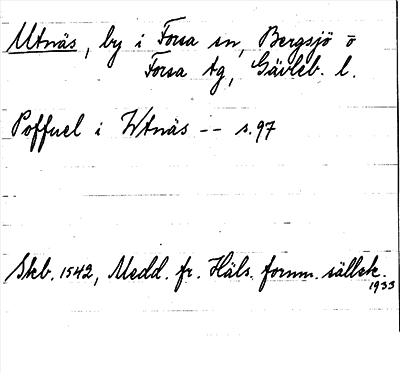 Utnäs, by i Forsa sn, Bergsjö o
Forsa tg, Gävleb. l.
Poffuel i Wtnäs -- s. 97
Skb. 1542, Medd. fr. Häls. fornm. sällsk.
1933